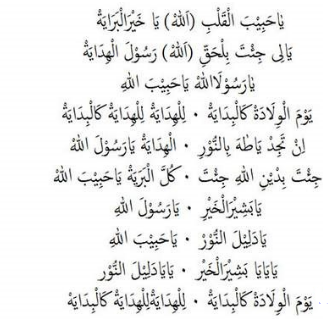 يَاحَبِيْبَ الْقَلْبِ (اَللهُ) يَا خَيْرَالْبَرَايَةْ
يَالِى جِئْتَ بِلْحَقِّ (اَللهُ) رَسُوْلَ الْهِدَايَةْ
يَارَسُوْلَاللهُ يَاحَبِيْبَ اللهِ
يَوْمَ الْوِلَادَةْ كَالْبِدَايَةْ ٠ لِلْهِدَايَةْ لِلْهِدَايَةْ كَالْبِدَايَةْ
اِنْ تَجِدْ يَاطٰهَ بِالنُّوْرِ ٠ الْهِدَايَةْ يَارَسُوْلَ اللهْ
جِئْتَ بِدِيْنِ اللهِ جِئْتَ ٠ كُلَّ الْبَرِيَةْ يَاحَبِيْبَ اللهْ
يَابَشِيْرَالْخَيْرِ ٠ يَارَسُوْلَ اللهِ
يَادَلِيْلَ النُّوْرْ ٠ يَاحَبِيْبَ اللهِ
يَايَايَا بَشِيْرَالْخَيْرْ ٠ يَايَادَلِيْلَ النُّوْرْ
يَوْمَ الْوِلَادَةْ كَالْبِدَايَةْ ٠ لِلْهِدَايَةْلِلْهِدَايَةْ كَالْبِدَايَةْ